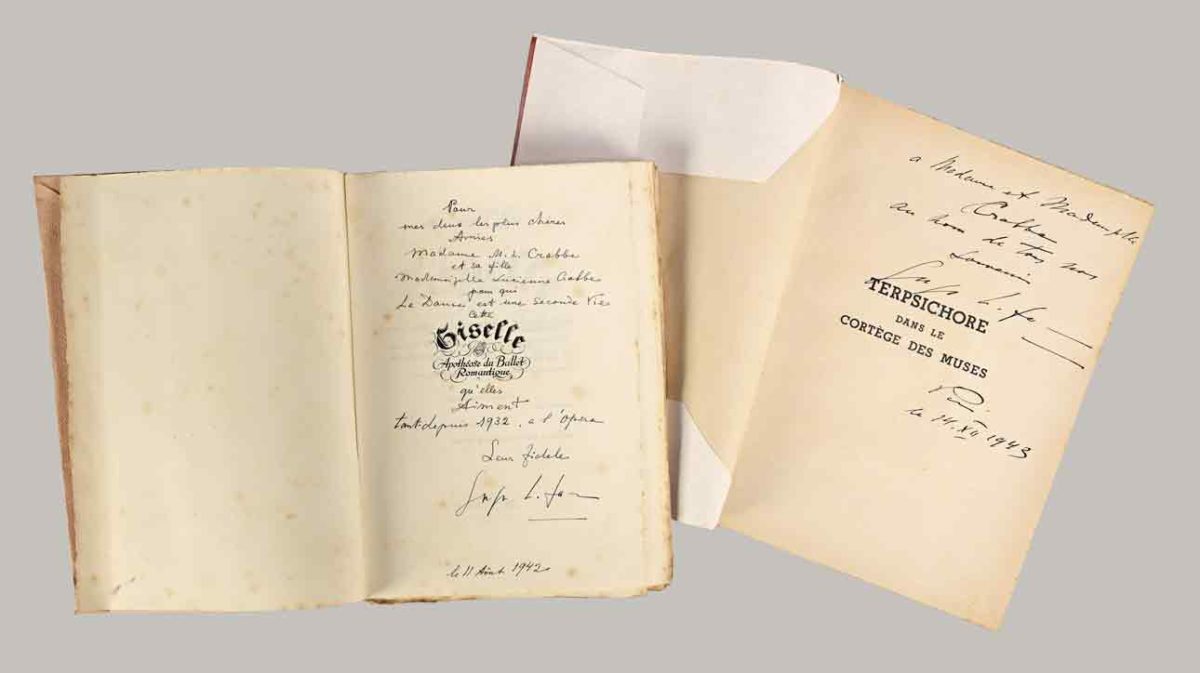 Pour
mes deux les plus chères
Amies
Madame M. L. Crabbe
et sa fille
Mademoiselle Lucienne Crabbe
pour qui
La Danse est une seconde Vie
Cette
Giselle
Apothéose du Ballet
Romantique
qu'elles
Aiment
tant depuis 1932, a l'Opera
Leur fidele
Serge Lifar
le 11 Août 1942
a Madame et Mademoiselle
Crabbe
au nom de tous nos
Souvenirs
Serge Lifar
TERPSICHORE
DANS LE
CORTÈGE DES MUSES
le 14. XII 1943